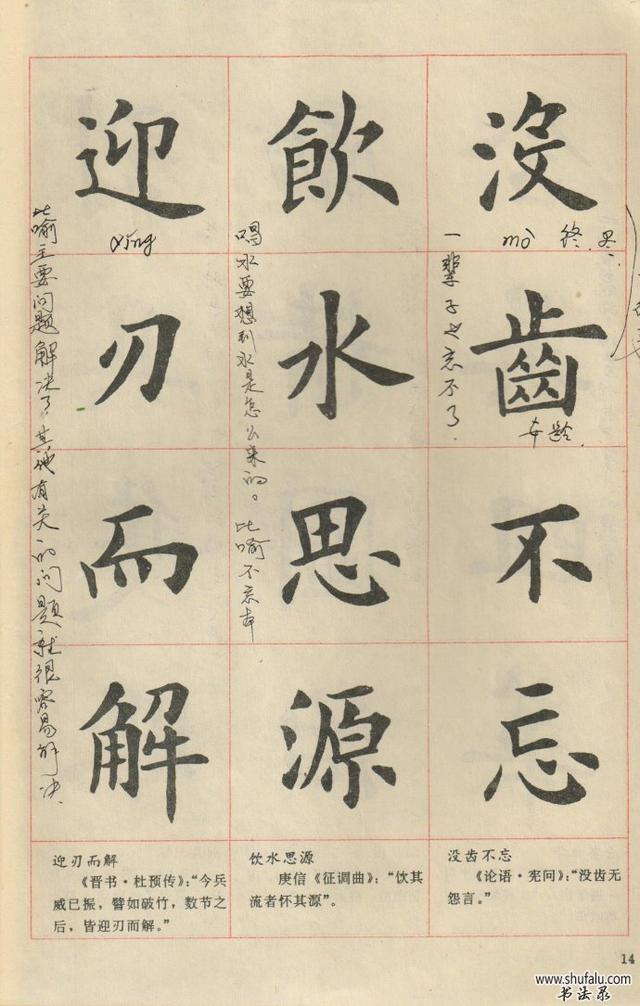 沒齒不忘
飲水思源
迎刃而解
mò 终.
一辈子也忘不了.
喝水要想到水是怎么来的。比喻不忘本
比喻主要问题解决了,其他有关的问题就很容易解决.
没齿不忘
《论语·宪问》:“没齿无
怨言。”
饮水思源
庚信《征调曲》:“饮其
流者怀其源”。
迎刃而解
《晋书·杜预传》:“今兵
威已振,譬如破竹,数节之
后,皆迎刃而解。”
14
www.shufalu.com
书法录